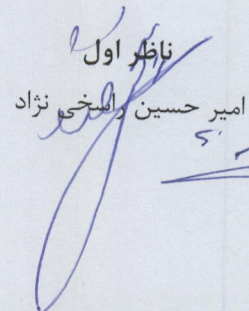 ناظر اول
امیر حسین راسخی نژاد